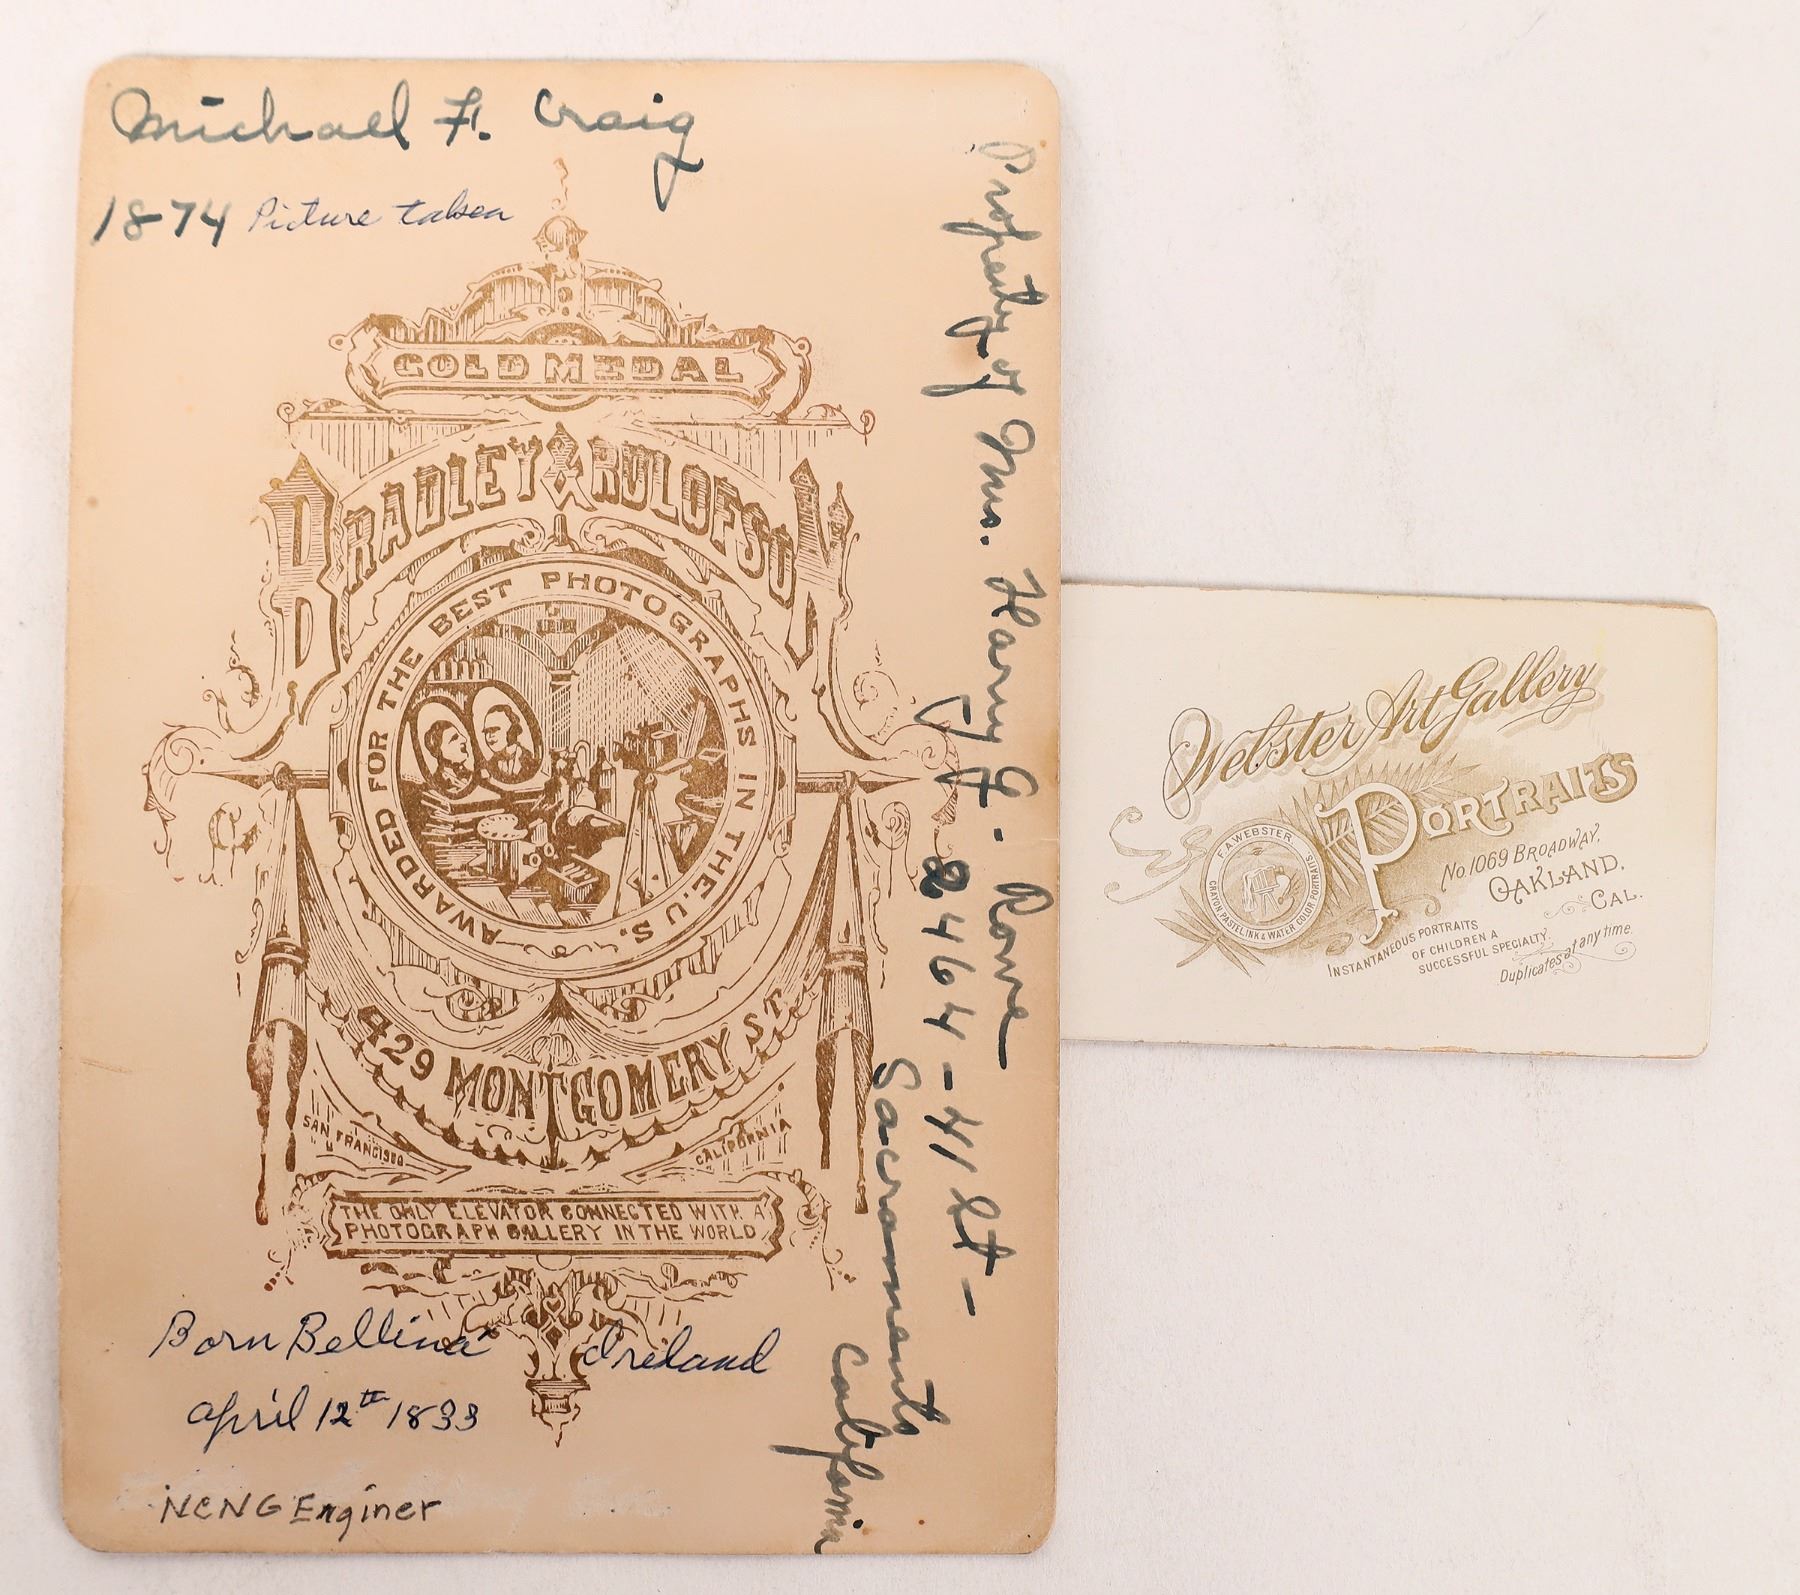 Michael F. Craig
1874 Picture taken
GOLD MEDAL
BRADLEY & RULOFSON
AWARDED FOR THE BEST PHOTOGRAPHS IN THE U.S.
429 MONTGOMERY ST.
SAN FRANCISCO
CALIFORNIA
THE ONLY ELEVATOR CONNECTED WITH A
PHOTOGRAPH GALLERY IN THE WORLD
Born Bellina Ireland
April 12th 1833
NCNG Enginer
Property of Mrs. Harry G. Rowe
2464 - 41 st -
Sacramento
California
Webster Art Gallery
PORTRAITS
F.A. WEBSTER.
CRAYON, PASTEL, INK & WATER COLOR PORTRAITS
No. 1069 BROADWAY,
OAKLAND,
CAL.
INSTANTANEOUS PORTRAITS
OF CHILDREN A
SUCCESSFUL SPECIALTY.
Duplicates at any time.